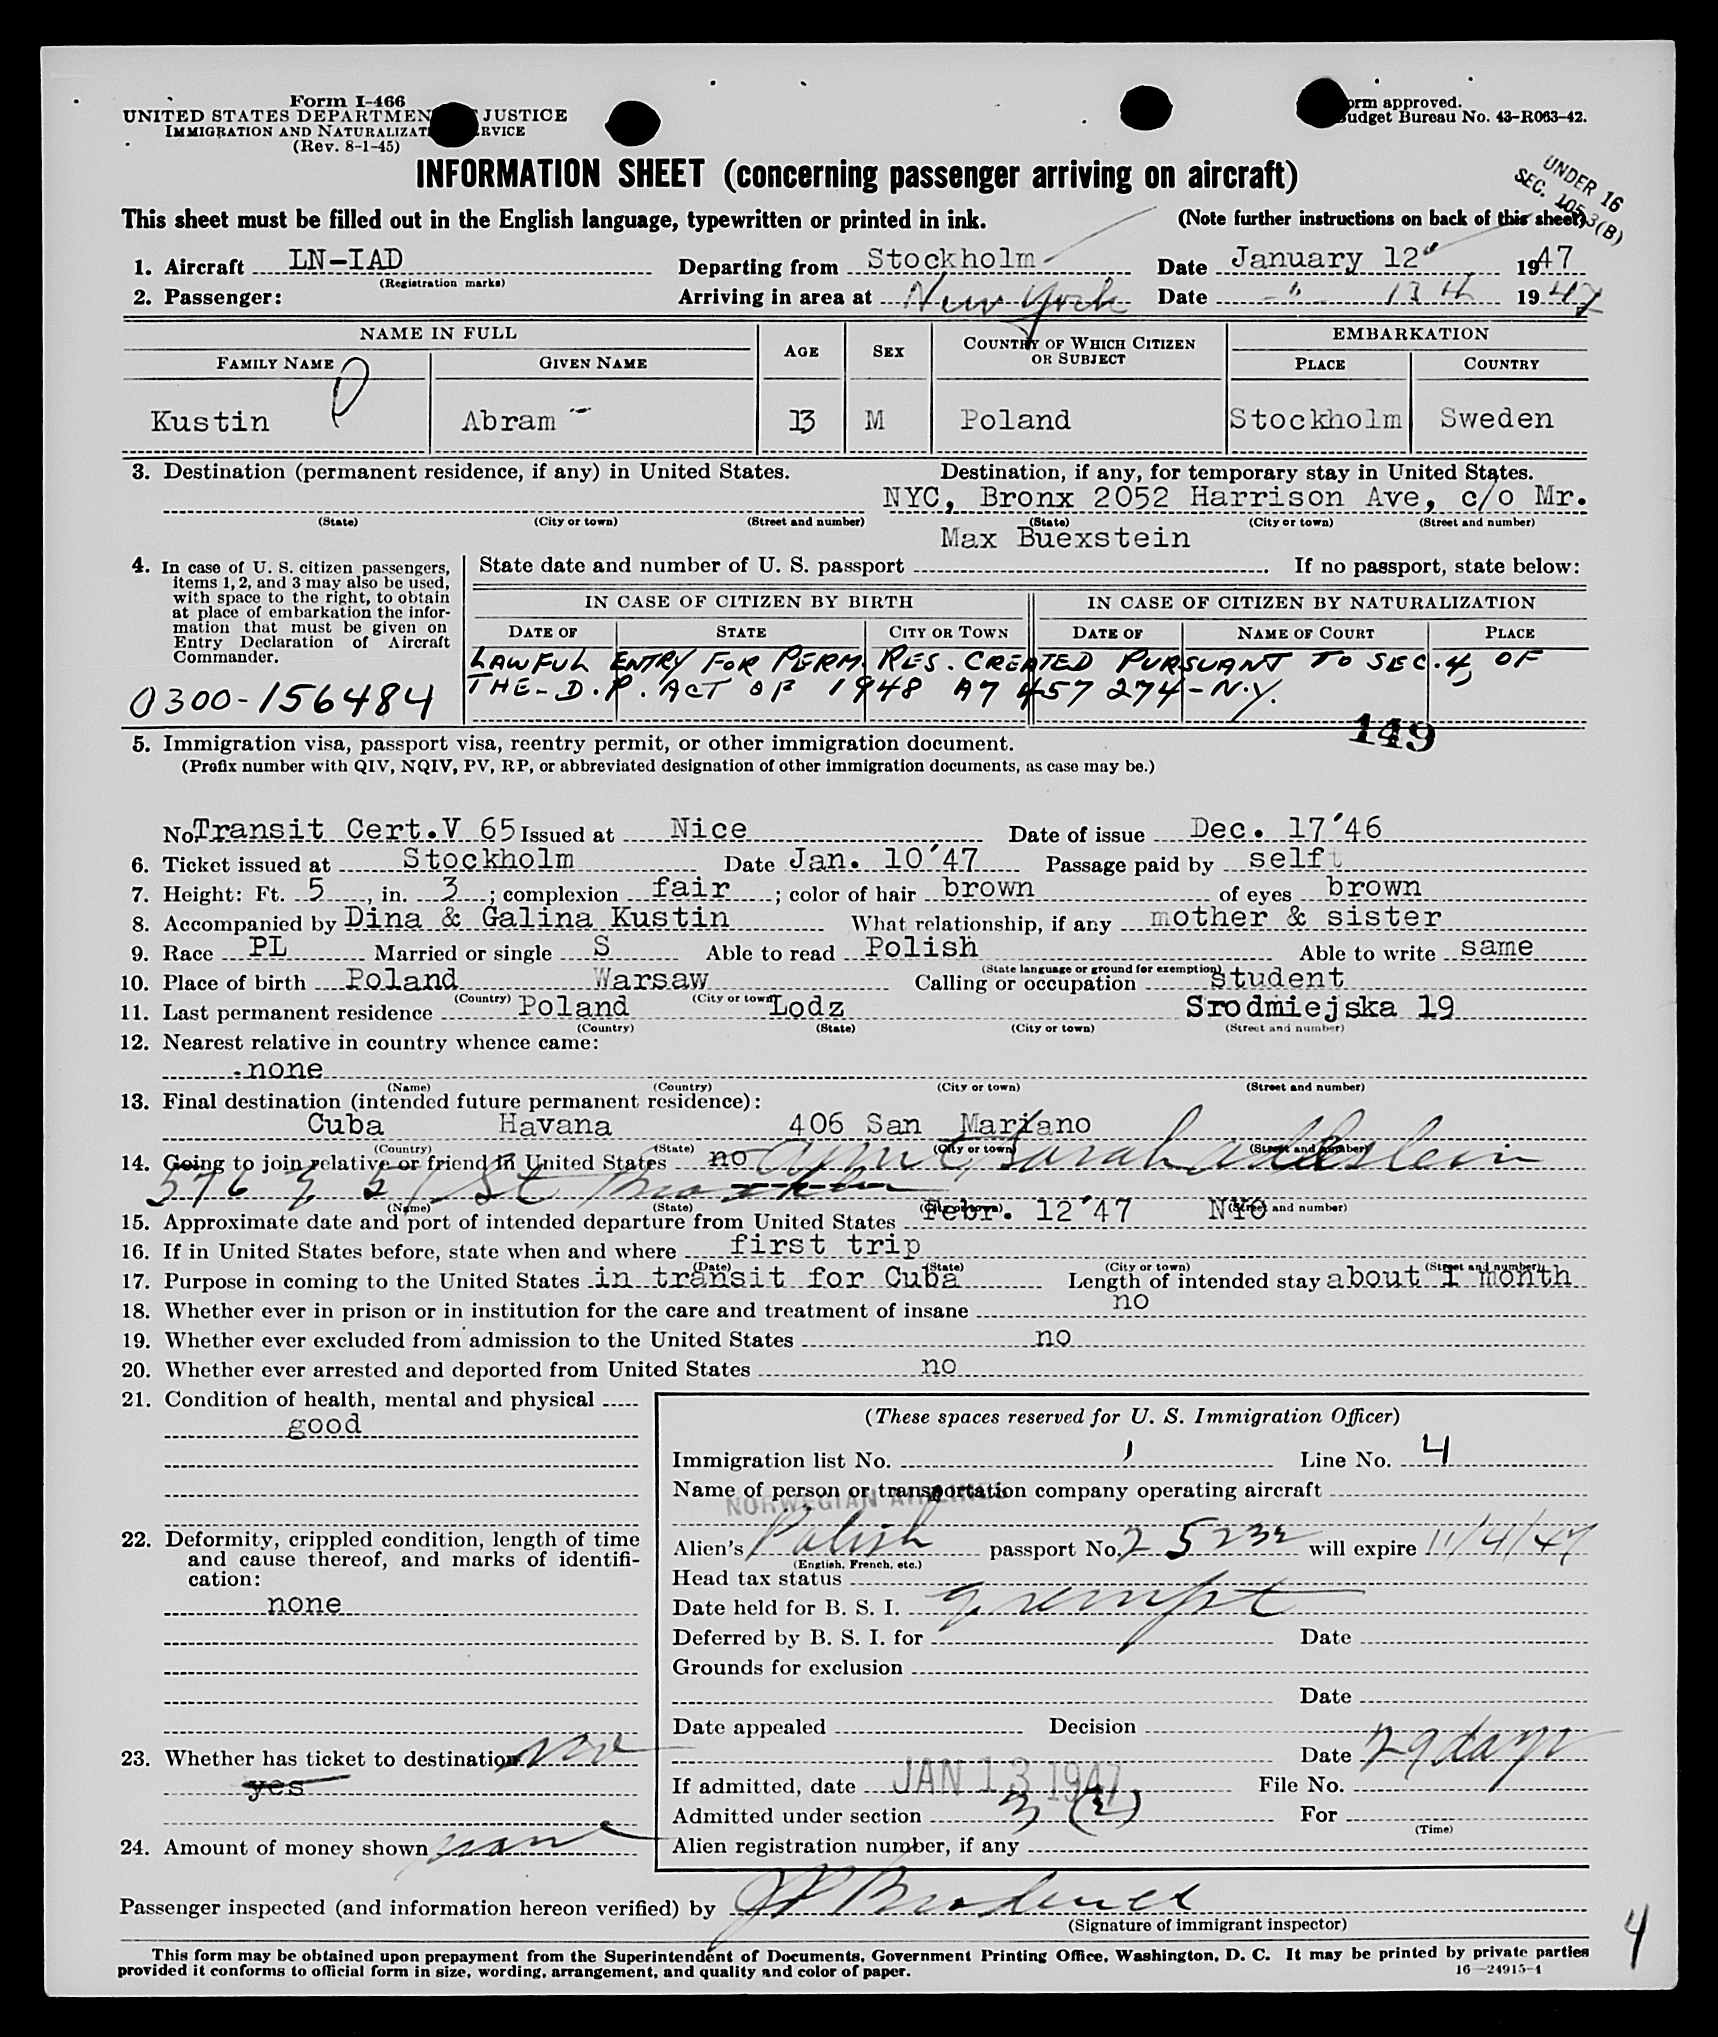 Form I-466
UNITED STATES DEPARTMEN JUSTICE
IMMIGRATION AND NATURALIZAT RVICE
(Rev. 8-1-45)
orm approved.
udget Bureau No. 43-R063-42.
INFORMATION SHEET (concerning passenger arriving on aircraft)
UNDER 16
SEC. 105.3(B)
This sheet must be filled out in the English language, typewritten or printed in ink. (Note further instructions on back of this sheet)
1. Aircraft LN-IAD Departing from Stockholm Date January 12 1947
(Registration marks)
2. Passenger: Arriving in area at New York Date " 13th 1947
NAME IN FULL AGE SEX COUNTRY OF WHICH CITIZEN OR SUBJECT EMBARKATION
FAMILY NAME GIVEN NAME PLACE COUNTRY
Kustin Abram 13 M Poland Stockholm Sweden
3. Destination (permanent residence, if any) in United States. Destination, if any, for temporary stay in United States.
NYC, Bronx 2052 Harrison Ave, c/o Mr.
(State) (City or town) (Street and number) (State) (City or town) (Street and number)
Max Buexstein
4. In case of U. S. citizen passengers, items 1, 2, and 3 may also be used, with space to the right, to obtain at place of embarkation the information that must be given on Entry Declaration of Aircraft Commander.
State date and number of U. S. passport If no passport, state below:
IN CASE OF CITIZEN BY BIRTH IN CASE OF CITIZEN BY NATURALIZATION
DATE OF STATE CITY OR TOWN DATE OF NAME OF COURT PLACE
LAWFUL ENTRY FOR PERM. RES. CREATED PURSUANT TO SEC. 4, OF
THE D.P. ACT OF 1948 A7 457 274-N.Y.
0300-156484
149
5. Immigration visa, passport visa, reentry permit, or other immigration document.
(Prefix number with QIV, NQIV, PV, RP, or abbreviated designation of other immigration documents, as case may be.)
No. Transit Cert.V 65 Issued at Nice Date of issue Dec. 17'46
6. Ticket issued at Stockholm Date Jan. 10'47 Passage paid by self
7. Height: Ft. 5, in. 3; complexion fair; color of hair brown of eyes brown
8. Accompanied by Dina & Galina Kustin What relationship, if any mother & sister
9. Race PL Married or single S Able to read Polish Able to write same
(State language or ground for exemption)
10. Place of birth Poland Warsaw Calling or occupation student
(Country) (City or town)
11. Last permanent residence Poland Lodz Srodmiejska 19
(Country) (State) (City or town) (Street and number)
12. Nearest relative in country whence came:
none
(Name) (Country) (City or town) (Street and number)
13. Final destination (intended future permanent residence):
Cuba Havana 406 San Mariano
(Country) (State) (City or town) (Street and number)
14. Going to join relative or friend in United States no Sarah
(Name) (State) (City or town) (Street and number)
15. Approximate date and port of intended departure from United States Febr. 12'47 NYC
16. If in United States before, state when and where first trip
(Date) (State) (City or town) (Street and number)
17. Purpose in coming to the United States in transit for Cuba Length of intended stay about 1 month
18. Whether ever in prison or in institution for the care and treatment of insane no
19. Whether ever excluded from admission to the United States no
20. Whether ever arrested and deported from United States no
21. Condition of health, mental and physical
good
22. Deformity, crippled condition, length of time and cause thereof, and marks of identification:
none
23. Whether has ticket to destination
yes
24. Amount of money shown none
(These spaces reserved for U. S. Immigration Officer)
Immigration list No. 1 Line No. 4
Name of person or transportation company operating aircraft
NORWEGIAN AIRLINES
Alien's Polish passport No. 25232 will expire 11/4/47
(English, French, etc.)
Head tax status
Date held for B. S. I. exempt
Deferred by B. S. I. for Date
Grounds for exclusion
Date
Date appealed Decision
Date 29 days
If admitted, date JAN 13 1947 File No.
Admitted under section 3 (2) For
(Time)
Alien registration number, if any
Passenger inspected (and information hereon verified) by
(Signature of immigrant inspector)
4
This form may be obtained upon prepayment from the Superintendent of Documents, Government Printing Office, Washington, D. C. It may be printed by private parties
provided it conforms to official form in size, wording, arrangement, and quality and color of paper.
16—24915-1